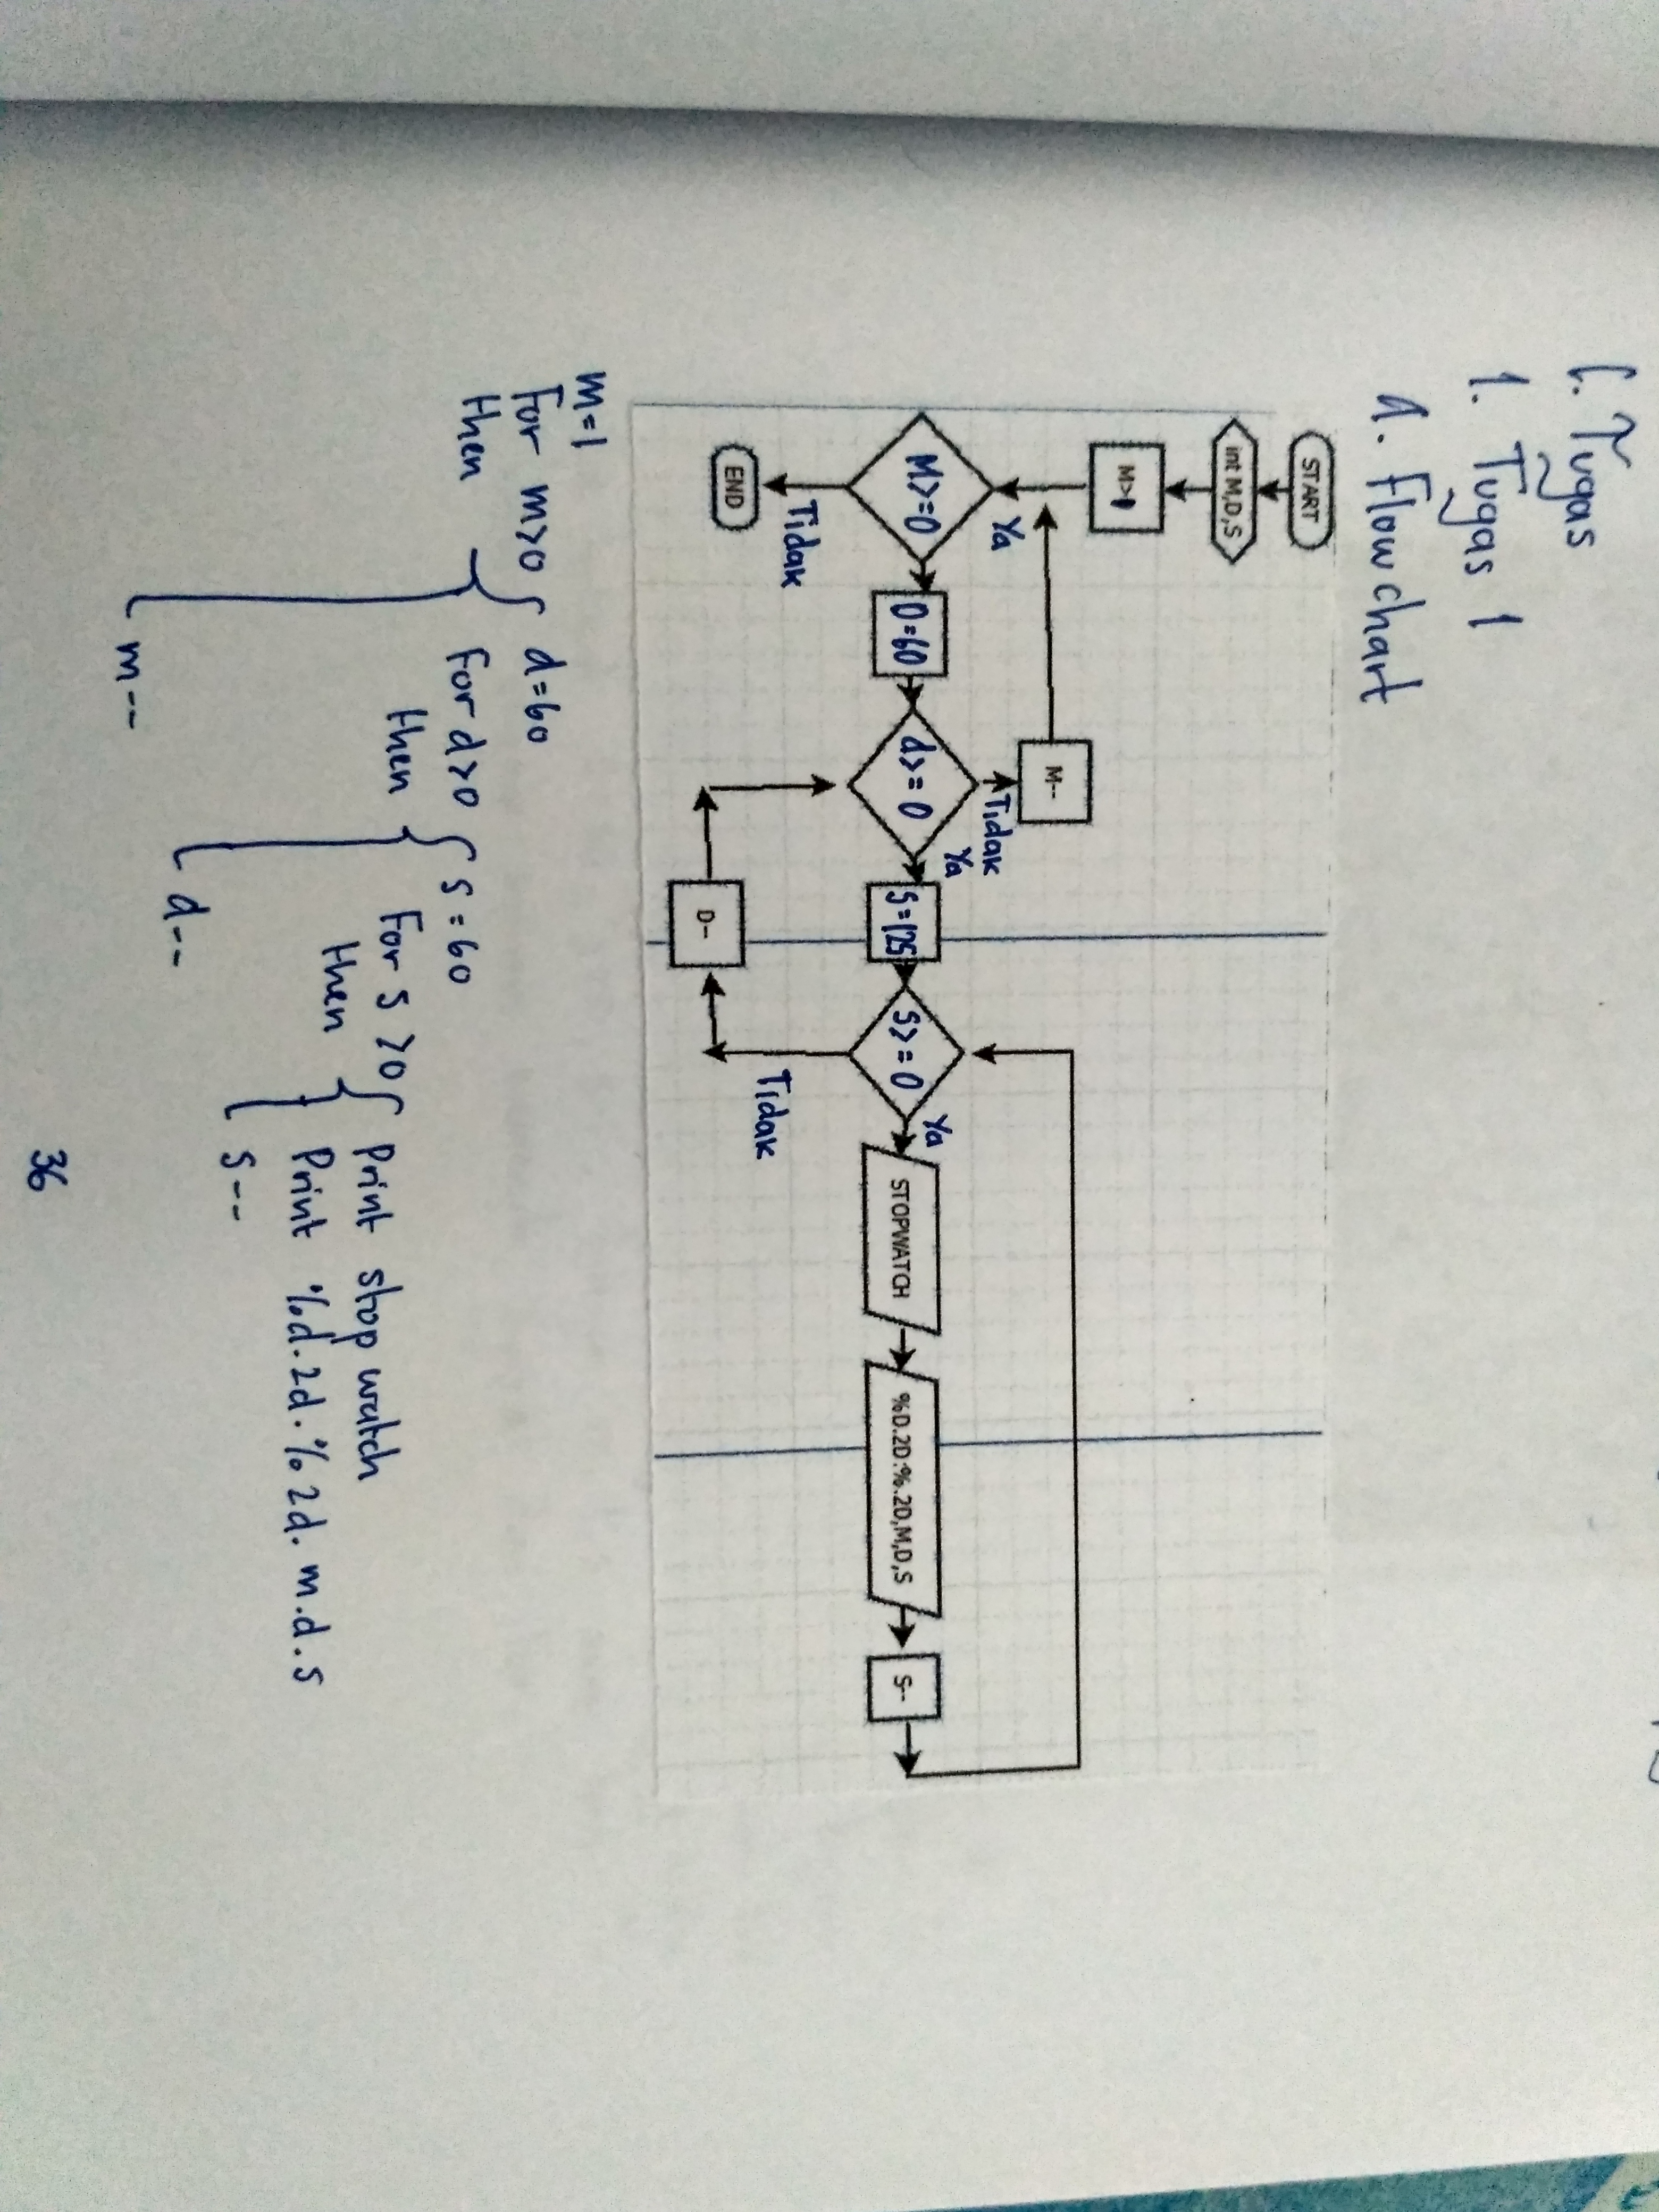 C. Tugas
1. Tugas 1
a. Flowchart
START
int M,D,S
M--
M>=0
Ya
Tidak
END
D=60
d>=0
Tidak
Ya
S=125
D--
S>=0
Ya
Tidak
STOPWATCH
%D.2D:%.2D,M,D,S
S--
m=1
For m>0
then
d=60
For d>0
then
s=60
For s>0
then
Print stop watch
Print %d.2d.%2d.m.d.s
s--
d--
m--
36